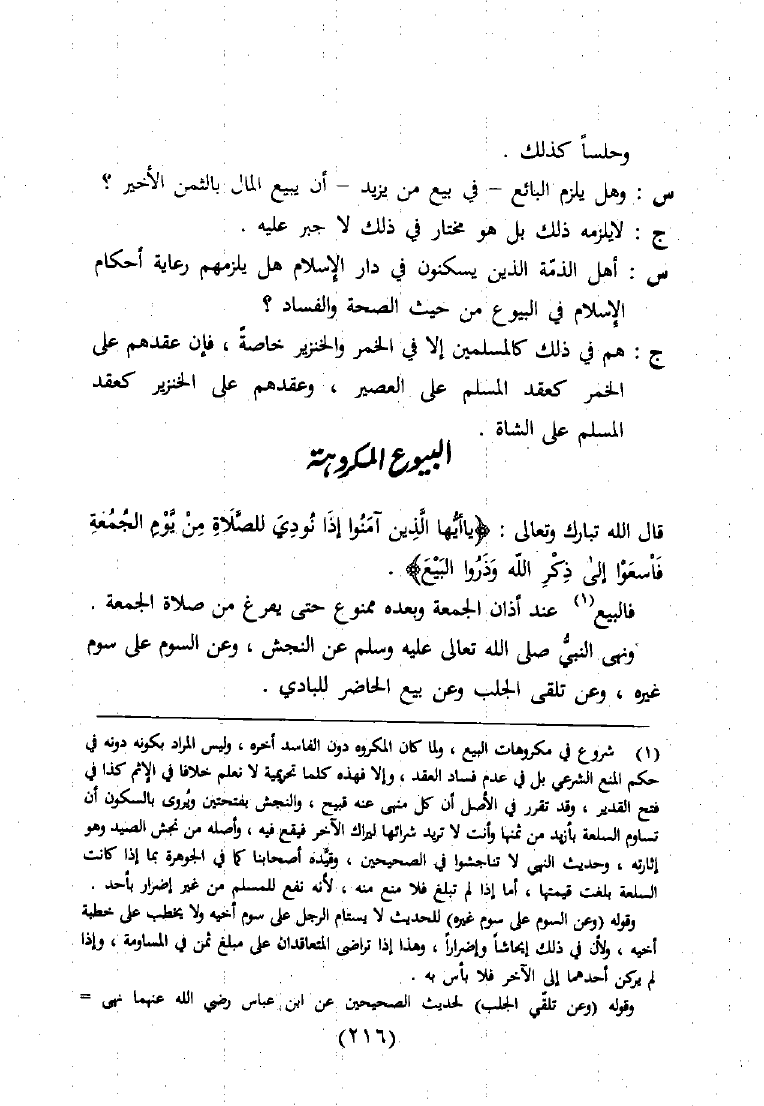 وحلساً كذلك .
س : وهل يلزم البائع – في بيع من يزيد – أن يبيع المال بالثمن الأخير ؟
ج : لايلزمه ذلك بل هو مختار في ذلك لا جبر عليه .
س : أهل الذمّة الذين يسكنون في دار الإسلام هل يلزمهم رعاية أحكام
الإسلام في البيوع من حيث الصحة والفساد ؟
ج : هم في ذلك كالمسلمين إلا في الخمر والخنزير خاصةً ، فإن عقدهم على
الخمر كعقد المسلم على العصير ، وعقدهم على الخنزير كعقد
المسلم على الشاة .
البيوع المكروهة
قال الله تبارك وتعالى : ﴿ياأيُّها الَّذِين آمَنُوا إذَا نُودِيَ للصَّلَاةِ مِنْ يَّوْمِ الجُمُعَةِ
فَاْسعَوْا إلىٰ ذِكْرِ اللّه وَذَرُوا البَيْعَ﴾ .
فالبيع(١) عند أذان الجمعة وبعده ممنوع حتى يفرغ من صلاة الجمعة .
ونهى النبيُّ صلى الله تعالى عليه وسلم عن النجش ، وعن السوم على سوم
غيره ، وعن تلقى الجلب وعن بيع الحاضر للبادي .
(١) شروع في مكروهات البيع ، ولما كان المكروه دون الفاسد أخره ، وليس المراد بكونه دونه في
حكم المنع الشرعي بل في عدم فساد العقد ، وإلا فهذه كلما تحريمية لا نعلم خلافا في الإثم كذا في
فتح القدير ، وقد تقرر في الأصل أن كل منهى عنه قبيح ، والنجش بفتحتين ويُروى بالسكون أن
تساوم السلعة بأزيد من ثمنها وأنت لا تريد شرائها ليراك الآخر فيقع فيه ، وأصله من نجش الصيد وهو
إثارته ، وحديث النهي لا تناجشوا في الصحيحين ، وقيَّده أصحابنا كما في الجوهرة بما إذا كانت
السلعة بلغت قيمتها ، أما إذا لم تبلغ فلا منع منه ، لأنه نفع للمسلم من غير إضرار بأحد .
وقوله (وعن السوم على سوم غيره) للحديث لا يستام الرجل على سوم أخيه ولا يخطب على خطبة
أخيه ، ولأن في ذلك إيحاشاً وإضراراً ، وهذا إذا تراضى المتعاقدان على مبلغ ثمن في المساومة ، وإذا
لم يركن أحدهما إلى الآخر فلا بأس به .
وقوله (وعن تلقّي الجلب) لحديث الصحيحين عن ابن عباس رضي الله عنهما نهى =
(٢١٦)